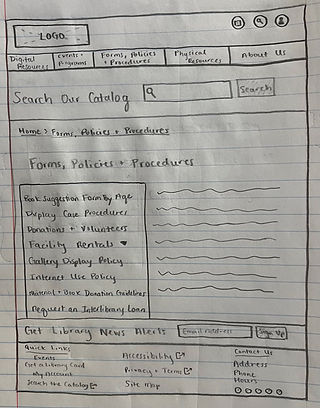 LOGO
Digital Resources
Events + Programs
Forms, Policies + Procedures
Physical Resources
About Us
Search Our Catalog
Search
Home > Forms, Policies + Procedures
Forms, Policies + Procedures
Book Suggestion Form By Age
Display Case Procedures
Donations + Volunteers
Facility Rentals ▼
Gallery Display Policy
Internet Use Policy
Material + Book Donation Guidelines
Request an Interlibrary Loan
Get Library News Alerts
Email Address
Sign Up
Quick Links
Events
Get a Library Card
My Account
Search the Catalog
Accessibility
Privacy + Terms
Site Map
Contact Us
Address
Phone
Hours